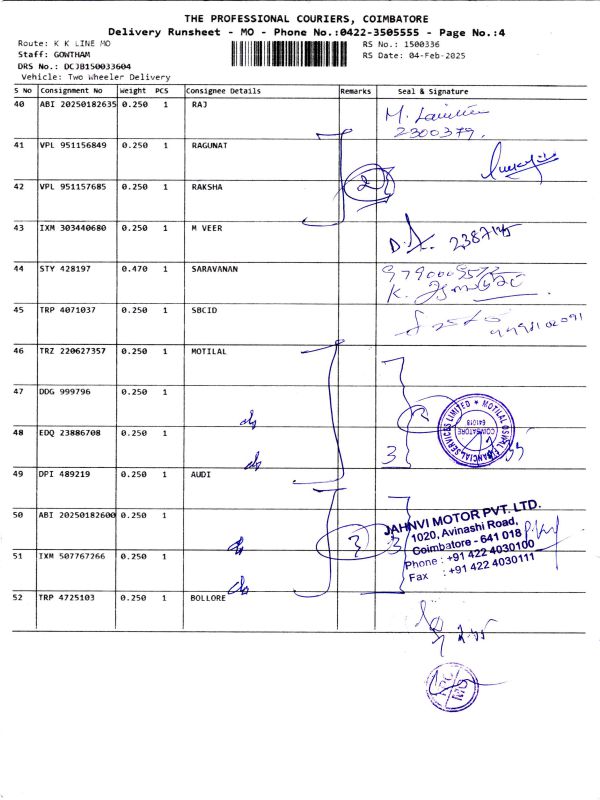 THE PROFESSIONAL COURIERS, COIMBATORE
Delivery Runsheet - MO - Phone No.:0422-3505555 - Page No.:4
Route: K K LINE MO RS No.: 1500336
Staff: GOWTHAM RS Date: 04-Feb-2025
DRS No.: DCJB150033604
Vehicle: Two Wheeler Delivery
S No Consignment No Weight PCS Consignee Details Remarks Seal & Signature
40 ABI 20250182635 0.250 1 RAJ
2300379.
41 VPL 951156849 0.250 1 RAGUNAT
42 VPL 951157685 0.250 1 RAKSHA 2
43 IXM 303440680 0.250 1 M VEER
44 STY 428197 0.470 1 SARAVANAN
K.
45 TRP 4071037 0.250 1 SBCID
46 TRZ 220627357 0.250 1 MOTILAL
47 DDG 999796 0.250 1
MOTILAL OSWAL FINANCIAL SERVICES LIMITED ★ COIMBATORE 641018
48 EDQ 23886708 0.250 1 3
49 DPI 489219 0.250 1 AUDI
50 ABI 20250182600 0.250 1
JAHNVI MOTOR PVT. LTD.
1020, Avinashi Road,
Coimbatore - 641 018
Phone : +91 422 4030100
Fax : +91 422 4030111
51 IXM 507767266 0.250 1 3 3
52 TRP 4725103 0.250 1 BOLLORE